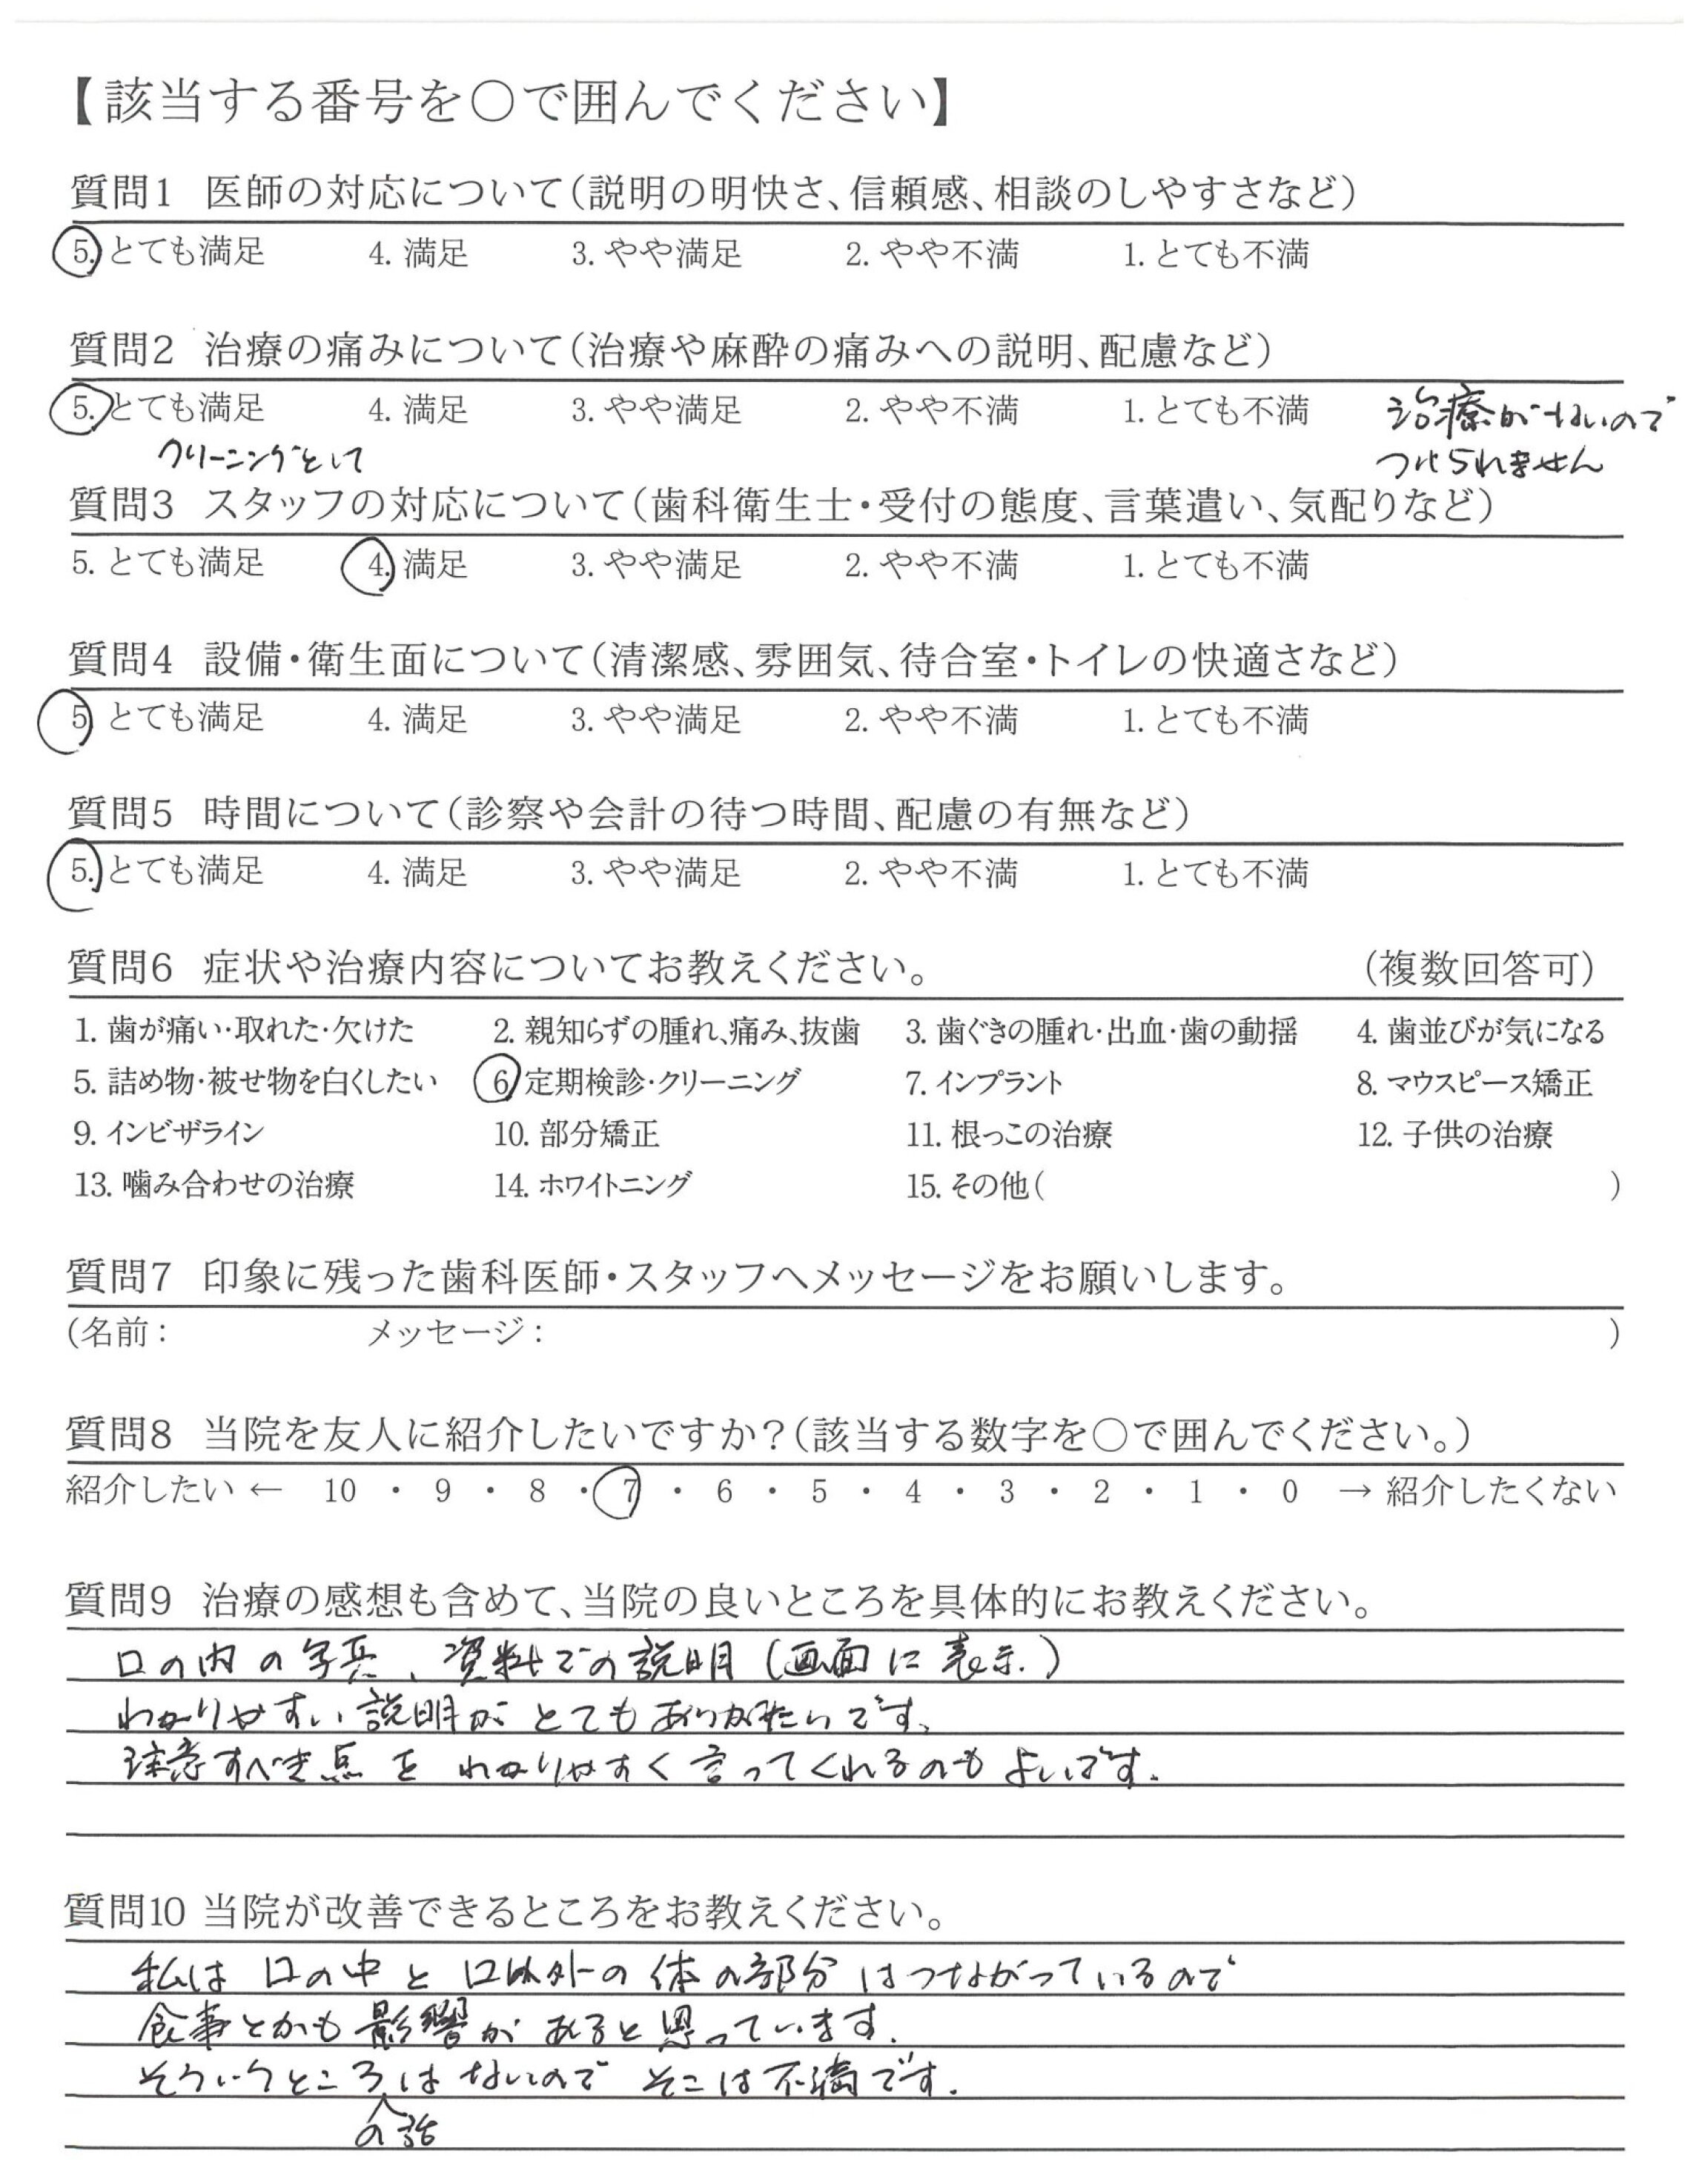 【該当する番号を○で囲んでください】
質問1 医師の対応について(説明の明快さ、信頼感、相談のしやすさなど)
5. とても満足 4. 満足 3. やや満足 2. やや不満 1. とても不満
質問2 治療の痛みについて(治療や麻酔の痛みへの説明、配慮など)
5. とても満足 4. 満足 3. やや満足 2. やや不満 1. とても不満 治療がないので
クリーニングとして つけられません
質問3 スタッフの対応について(歯科衛生士・受付の態度、言葉遣い、気配りなど)
5. とても満足 4. 満足 3. やや満足 2. やや不満 1. とても不満
質問4 設備・衛生面について(清潔感、雰囲気、待合室・トイレの快適さなど)
5. とても満足 4. 満足 3. やや満足 2. やや不満 1. とても不満
質問5 時間について(診察や会計の待つ時間、配慮の有無など)
5. とても満足 4. 満足 3. やや満足 2. やや不満 1. とても不満
質問6 症状や治療内容についてお教えください。 (複数回答可)
1. 歯が痛い・取れた・欠けた 2. 親知らずの腫れ、痛み、抜歯 3. 歯ぐきの腫れ・出血・歯の動揺 4. 歯並びが気になる
5. 詰め物・被せ物を白くしたい 6. 定期検診・クリーニング 7. インプラント 8. マウスピース矯正
9. インビザライン 10. 部分矯正 11. 根っこの治療 12. 子供の治療
13. 噛み合わせの治療 14. ホワイトニング 15. その他( )
質問7 印象に残った歯科医師・スタッフへメッセージをお願いします。
(名前: メッセージ: )
質問8 当院を友人に紹介したいですか?(該当する数字を○で囲んでください。)
紹介したい ← 10 ・ 9 ・ 8 ・ 7 ・ 6 ・ 5 ・ 4 ・ 3 ・ 2 ・ 1 ・ 0 → 紹介したくない
質問9 治療の感想も含めて、当院の良いところを具体的にお教えください。
口の内の写真、資料での説明(画面に表示.)
わかりやすい説明がとてもありがたいです。
注意すべき点をわかりやすく言ってくれるのもよいです.
質問10 当院が改善できるところをお教えください。
私は口の中と口以外の体の部分はつながっているので
食事とかも影響があると思っています.
そういうところはないのでそこは不満です.
の話